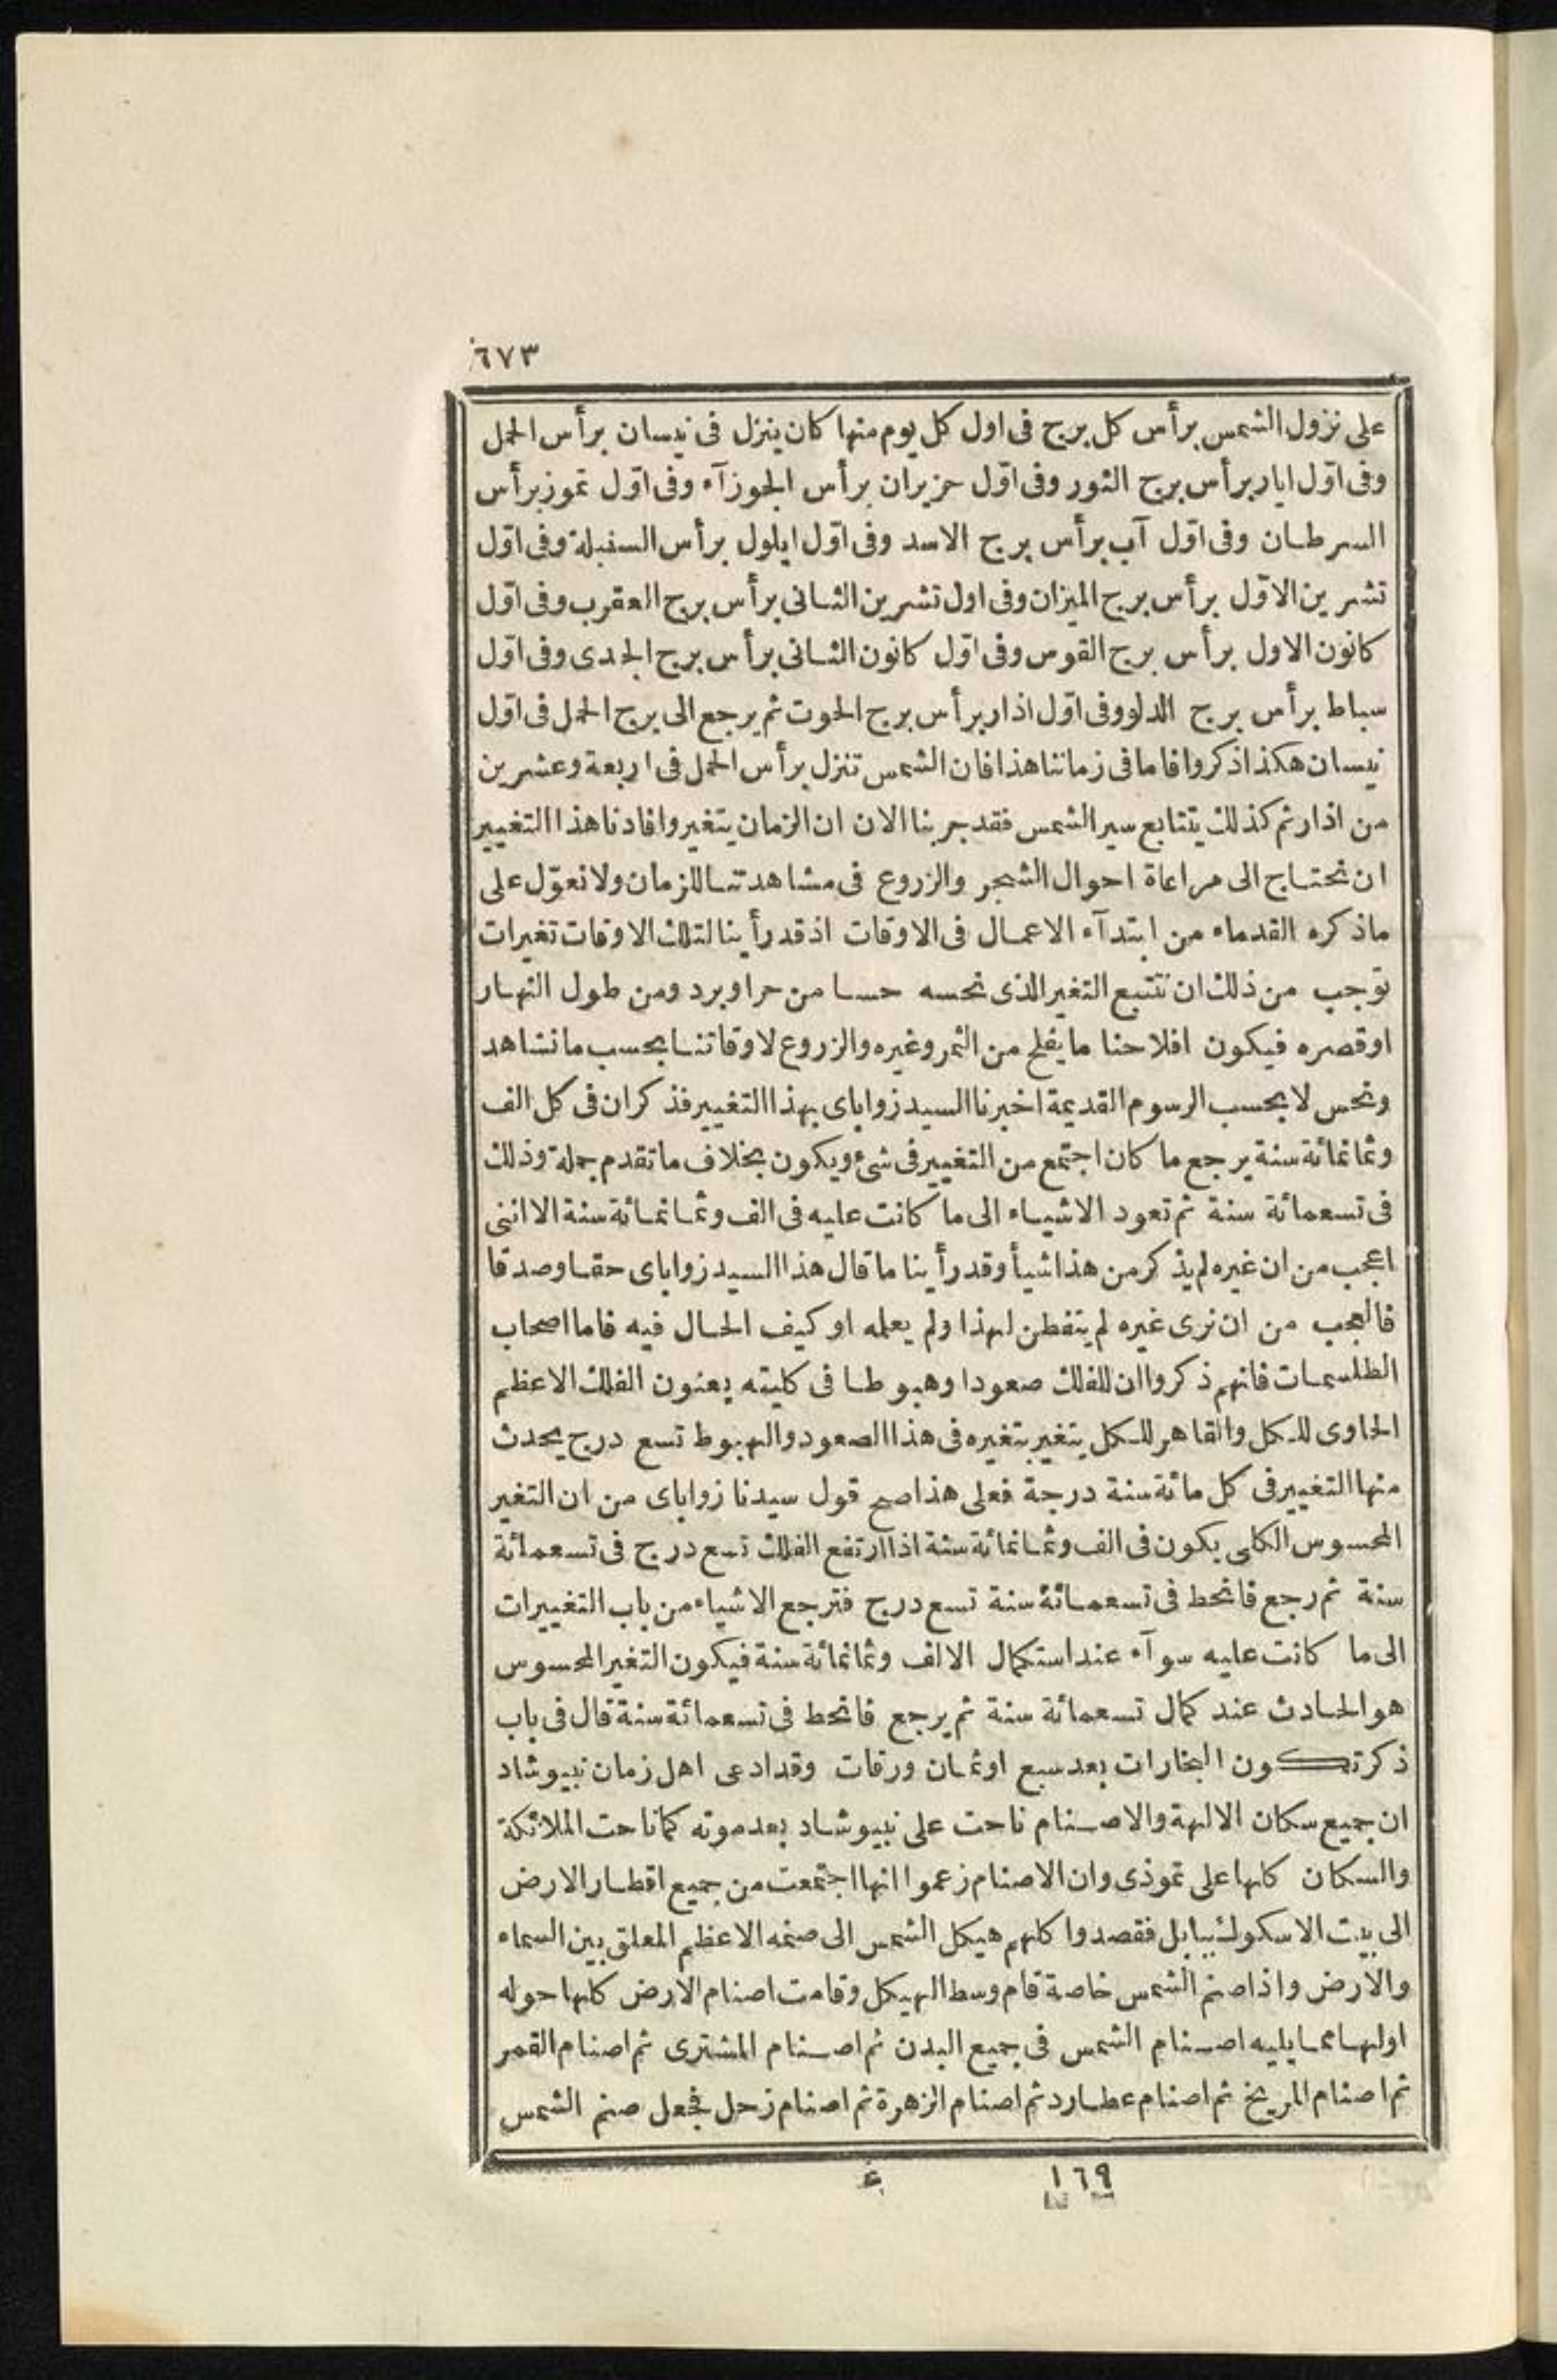 ٦٧٣
على نزول الشمس برأس كل برج فى اول كل يوم منها كان ينزل فى نيسان برأس الحمل
وفى اوّل ايار برأس برج الثور وفى اوّل حزيران برأس الجوزآء وفى اوّل تموز برأس
السرطان وفى اوّل آب برأس برج الاسد وفى اوّل ايلول برأس السنبلة وفى اوّل
تشرين الاوّل برأس برج الميزان وفى اول تشرين الثانى برأس برج العقرب وفى اوّل
كانون الاول برأس برج القوس وفى اوّل كانون الثانى برأس برج الجدى وفى اوّل
سباط برأس برج الدلو وفى اوّل اذار برأس برج الحوت ثم يرجع الى برج الحمل فى اوّل
نيسان هكذا ذكروا فاما فى زماننا هذا فان الشمس تنزل برأس الحمل فى اربعة وعشرين
من اذار ثم كذلك يتتابع سير الشمس فقد جربنا الان ان الزمان يتغير وافادنا هذا التغيير
ان نحتاج الى مراعاة احوال الشجر والزروع فى مشاهدتنا للزمان ولا نعوّل على
ماذكره القدماء من ابتدآء الاعمال فى الاوقات اذ قد رأينا لتلك الاوقات تغيرات
توجب من ذلك ان نتتبع التغير الذى نحسه حسا من حر او برد ومن طول النهار
او قصره فيكون افلاحنا ما يفلح من الثمر وغيره والزروع لاوقاتنا بحسب ما نشاهد
ونحس لا بحسب الرسوم القديمة اخبرنا السيد زواباى بهذا التغيير فذكر ان فى كل الف
وثمانمائة سنة يرجع ما كان اجتمع من التغيير فى شئ ويكون بخلاف ما تقدم جملة وذلك
فى تسعمائة سنة ثم تعود الاشياء الى ما كانت عليه فى الف وثمانمائة سنة الا اننى
اعجب من ان غيره لم يذكر من هذا شيأ وقد رأينا ما قال هذا السيد زواباى حقا وصدقا
فالعجب من ان نرى غيره لم يتفطن لهذا ولم يعلمه او كيف الحال فيه فاما اصحاب
الطلسمات فانهم ذكروا ان للفلك صعودا وهبوطا فى كليته يعنون الفلك الاعظم
الحاوى للكل والقاهر للكل يتغير بتغيره فى هذا الصعود والهبوط تسع درج يحدث
منها التغيير فى كل مائة سنة درجة فعلى هذا صح قول سيدنا زواباى من ان التغير
المحسوس الكلى يكون فى الف وثمانمائة سنة اذا ارتفع الفلك تسع درج فى تسعمائة
سنة ثم رجع فانحط فى تسعمائة سنة تسع درج فترجع الاشياء من باب التغييرات
الى ما كانت عليه سوآء عند استكمال الالف وثمانمائة سنة فيكون التغير المحسوس
هو الحادث عند كمال تسعمائة سنة ثم يرجع فانحط فى تسعمائة سنة قال فى باب
ذكر تكون البخارات بعد سبع او ثمان ورقات وقد ادعى اهل زمان نبيوشاد
ان جميع سكان الالهة والاصنام ناحت على نبيوشاد بعد موته كما ناحت الملائكة
والسكان كلها على تموذى وان الاصنام زعموا انها اجتمعت من جميع اقطار الارض
الى بيت الاسكول ببابل فقصدوا كلهم هيكل الشمس الى صنمه الاعظم المعلق بين السماء
والارض واذا صنم الشمس خاصة قام وسط الهيكل وقامت اصنام الارض كلها حوله
اولها مما يليه اصنام الشمس فى جميع البدن ثم اصنام المشترى ثم اصنام القمر
ثم اصنام المريخ ثم اصنام عطارد ثم اصنام الزهرة ثم اصنام زحل فجعل صنم الشمس
١٦٩ ع